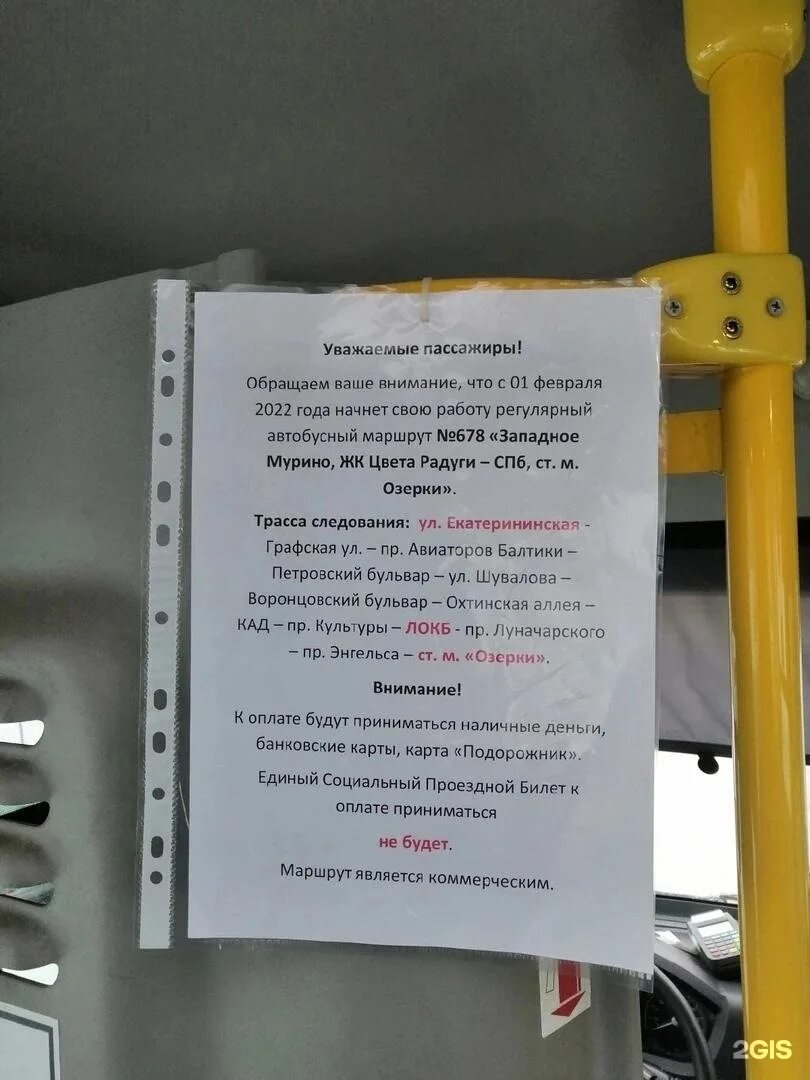 Уважаемые пассажиры!
Обращаем ваше внимание, что с 01 февраля
2022 года начнет свою работу регулярный
автобусный маршрут №678 «Западное
Мурино, ЖК Цвета Радуги – СПб, ст. м.
Озерки».
Трасса следования: ул. Екатерининская -
Графская ул. – пр. Авиаторов Балтики –
Петровский бульвар – ул. Шувалова –
Воронцовский бульвар – Охтинская аллея –
КАД – пр. Культуры – ЛОКБ - пр. Луначарского
– пр. Энгельса – ст. м. «Озерки».
Внимание!
К оплате будут приниматься наличные деньги,
банковские карты, карта «Подорожник».
Единый Социальный Проездной Билет к
оплате приниматься
не будет.
Маршрут является коммерческим.
2GIS